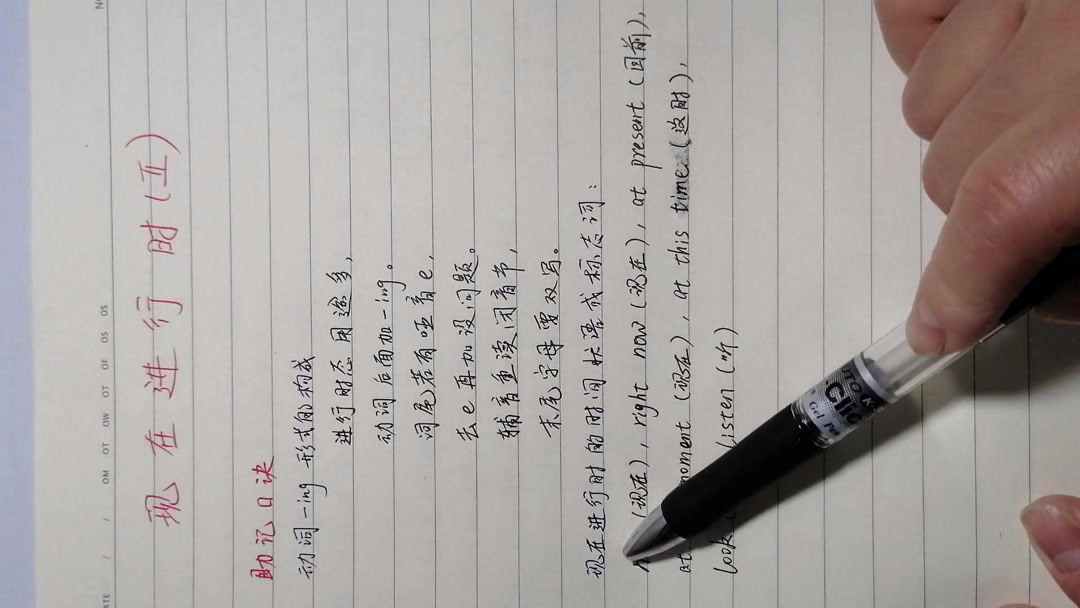 现在进行时(五)
助记口诀
动词-ing 形式的构成
进行时态用途多,
动词后面加-ing。
词尾若有哑音e,
去e再加没问题。
辅音重读闭音节,
末尾字母要双写。
现在进行时的时间状语或标志词:
(现在), right now (现在), at present (目前),
at moment (现在), at this time (这时),
look listen (听)